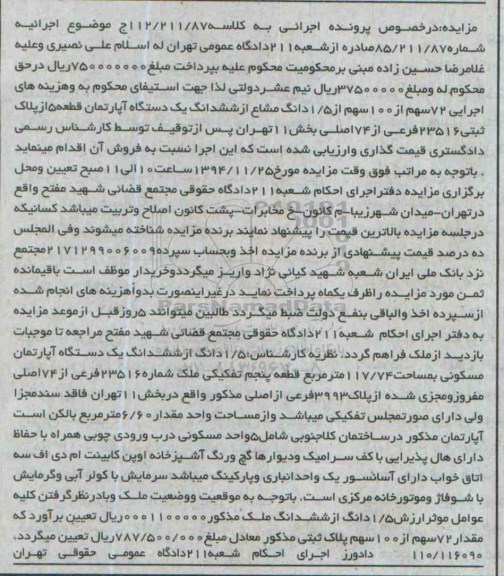 مزایده:درخصوص پرونده اجرائی به کلاسه۱۱۲/۲۱۱/۸۷ج موضوع اجرائیه
شماره۸۵/۲۱۱/۸۷صادره ازشعبه۲۱۱دادگاه عمومی تهران له اسلام علی نصیری وعلیه
غلامرضا حسین زاده مبنی برمحکومیت محکوم علیه بپرداخت مبلغ۷۵۰۰۰۰۰۰۰ریال درحق
محکوم له ومبلغ۳۷۵۰۰۰۰۰ریال نیم عشردولتی لذا جهت استیفای محکوم به وهزینه های
اجرایی ۷۲سهم از۱۰۰سهم از۱/۵دانگ مشاع ازششدانگ یک دستگاه آپارتمان قطعه۵ازپلاک
ثبتی۲۳۵۱۶فرعی از۷۴اصلی بخش۱۱تهران پس ازتوقیف توسط کارشناس رسمی
دادگستری قیمت گذاری وارزیابی شده است که این اجرا نسبت به فروش آن اقدام مینماید
. باتوجه به مراتب فوق وقت مزایده مورخ۱۳۹۴/۱۱/۲۵ساعت۱۰الی۱۱صبح تعیین ومحل
برگزاری مزایده دفتراجرای احکام شعبه۲۱۱دادگاه حقوقی مجتمع قضائی شهید مفتح واقع
درتهران-میدان شهرزیبا-م کانون-خ مخابرات-پشت کانون اصلاح وتربیت میباشد کسانیکه
درجلسه مزایده بالاترین قیمت را پیشنهاد نمایند برنده مزایده شناخته میشوند وفی المجلس
ده درصد قیمت پیشنهادی از برنده مزایده اخذ وبحساب سپرده۲۱۷۱۲۹۹۰۰۶۰۰۹مجتمع
نزد بانک ملی ایران شعبه شهید کیانی نژاد واریز میگرددوخریدار موظف است باقیمانده
ثمن مورد مزایده راظرف یکماه پرداخت نماید درغیراینصورت بدوأهزینه های انجام شده
ازسپرده اخذ والباقی بنفع دولت ضبط میگردد طالبین میتوانند ۵روزقبل ازموعد مزایده
به دفتر اجرای احکام شعبه۲۱۱دادگاه حقوقی مجتمع قضائی شهید مفتح مراجعه تا موجبات
بازدید ازملک فراهم گردد. نظریه کارشناس:۱/۵دانگ ازششدانگ یک دستگاه آپارتمان
مسکونی بمساحت۱۱۷/۷۴مترمربع قطعه پنجم تفکیکی ملک شماره۲۳۵۱۶فرعی از۷۴اصلی
مفروزومجزی شده ازپلاک۳۹۹۳فرعی ازاصلی مذکور واقع دربخش۱۱تهران فاقد سندمجزا
ولی دارای صورتمجلس تفکیکی میباشد وازمساحت واحد مقدار۶/۶۰مترمربع بالکن است
آپارتمان مذکور درساختمان کلاجنوبی شامل۵واحد مسکونی درب ورودی چوبی همراه با حفاظ
دارای هال پذیرایی با کف سرامیک ودیوارها گچ ورنگ آشپزخانه اوپن کابینت ام دی اف سه
اتاق خواب دارای آسانسور یک واحدانباری وپارکینگ میباشد سرمایش با کولر آبی وگرمایش
با شوفاژ وموتورخانه مرکزی است. باتوجه به موقعیت ووضعیت ملک وبادرنظرگرفتن کلیه
عوامل موثرارزش۱/۵دانگ ازششدانگ ملک مذکور۱۱۰۰۰۰۰۰۰۰ریال تعیین برآورد که
مقدار۷۲سهم از۱۰۰سهم پلاک ثبتی مذکور معادل مبلغ۷۸۷/۵۰۰/۰۰۰ریال تعیین میگردد.
۱۱۰/۱۱۶۰۹۰ دادورز اجرای احکام شعبه۲۱۱دادگاه عمومی حقوقی تهران